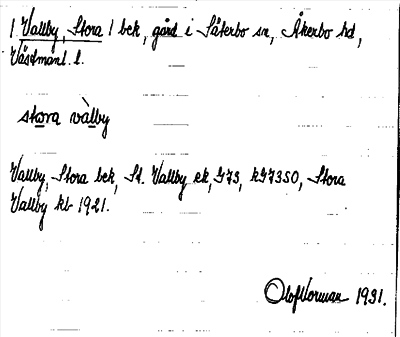 1 Vallby, Stora 1 bek, gård i Säterbo sn, Åkerbo hd,
Västmanl. l.
stora vàlby
Vallby, Stora bek, St. Vallby ek, G73, kG73SO, Stora
Vallby kb 1921.
Olof Norman 1931.